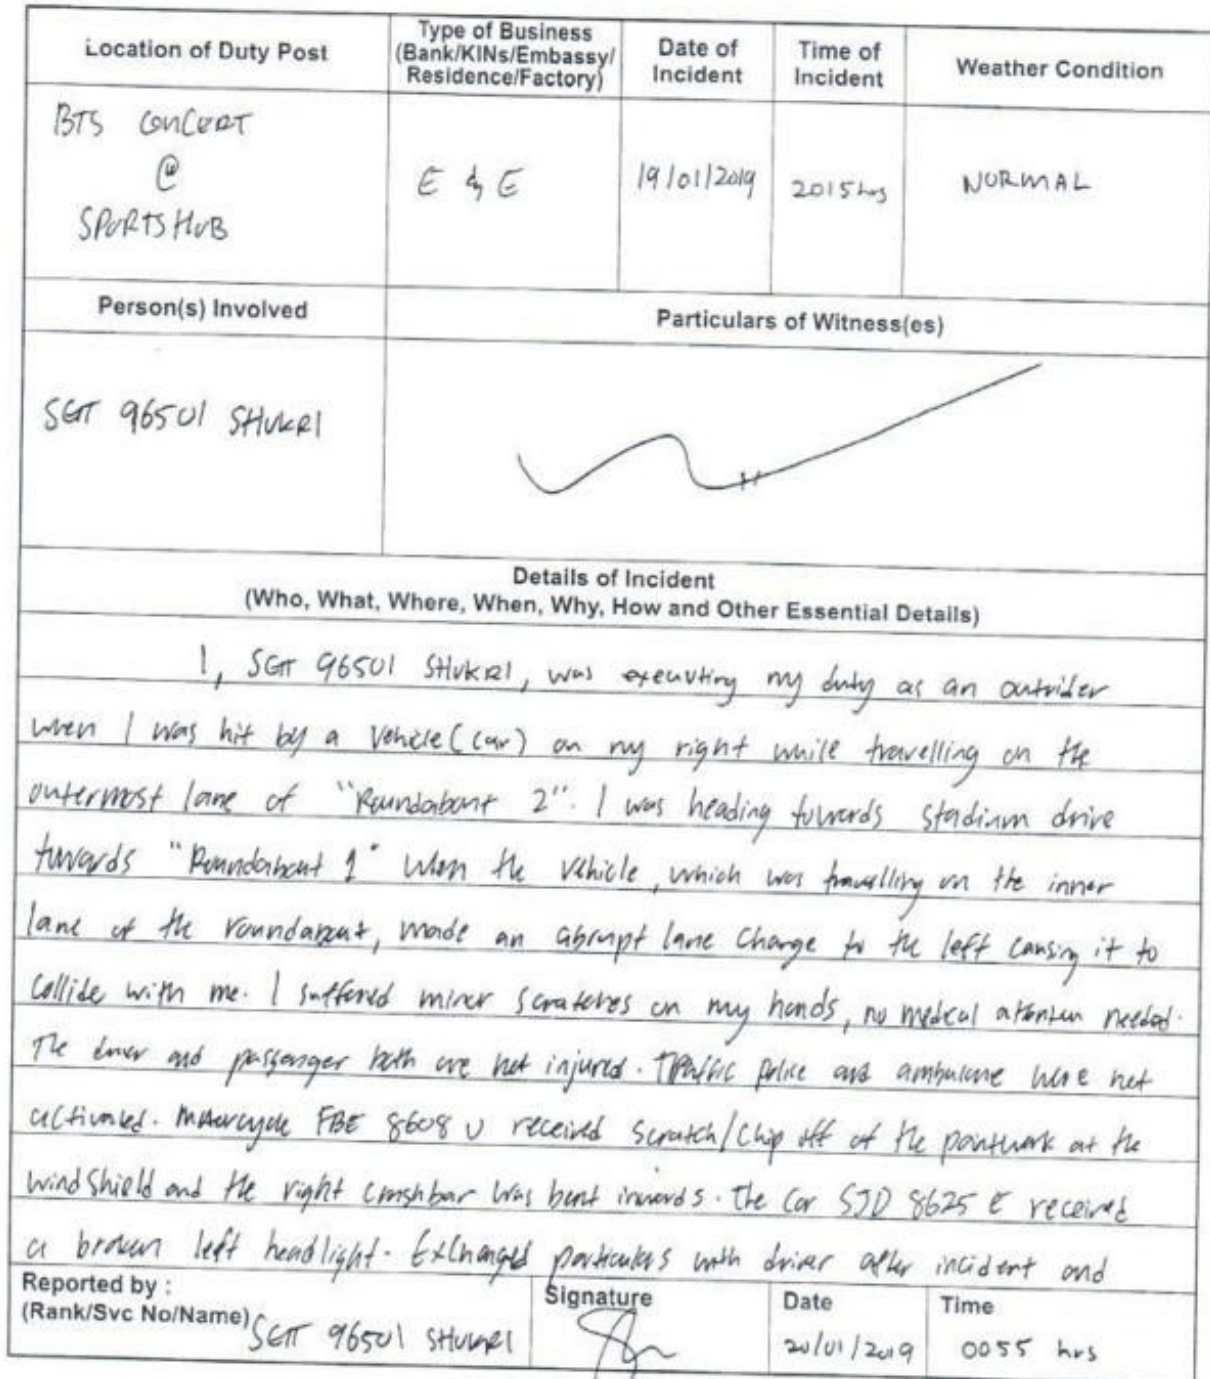 Location of Duty Post
Type of Business
(Bank/KINs/Embassy/
Residence/Factory)
Date of
Incident
Time of
Incident
Weather Condition
BTS CONCERT
@
SPORTS HUB
E & E
19/01/2019
2015hrs
NORMAL
Person(s) Involved
Particulars of Witness(es)
SGT 96501 SHUKRI
Details of Incident
(Who, What, Where, When, Why, How and Other Essential Details)
I, SGT 96501 SHUKRI, was executing my duty as an outrider
when I was hit by a vehicle (car) on my right while travelling on the
outermost lane of "Roundabout 2". I was heading towards stadium drive
towards "Roundabout 1" when the vehicle, which was travelling on the inner
lane of the roundabout, made an abrupt lane change to the left causing it to
collide with me. I suffered minor scratches on my hands, no medical attention needed.
The driver and passenger both are not injured. Traffic police and ambulance were not
activated. Motorcycle FBE 8608 U received scratch/chip off of the paintwork at the
windshield and the right crashbar was bent inwards. The car SJD 8625 E received
a broken left headlight. Exchanged particulars with driver after incident and
Reported by :
(Rank/Svc No/Name) SGT 96501 SHUKRI
Signature
Date
20/01/2019
Time
0055 hrs